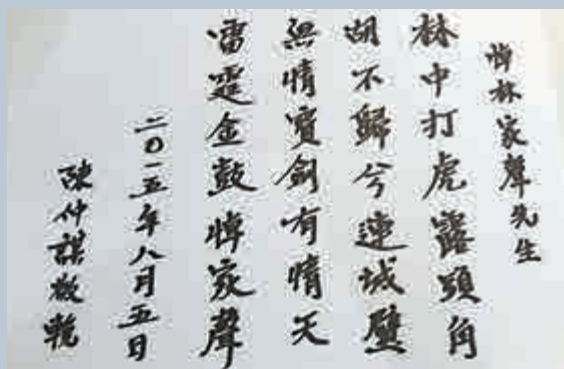 悼林家聲先生
林中打虎露頭角
胡不歸兮連城璧
無情寶劍有情天
雷霆金鼓悼家聲
二〇一五年八月五日
陳仲謀敬輓